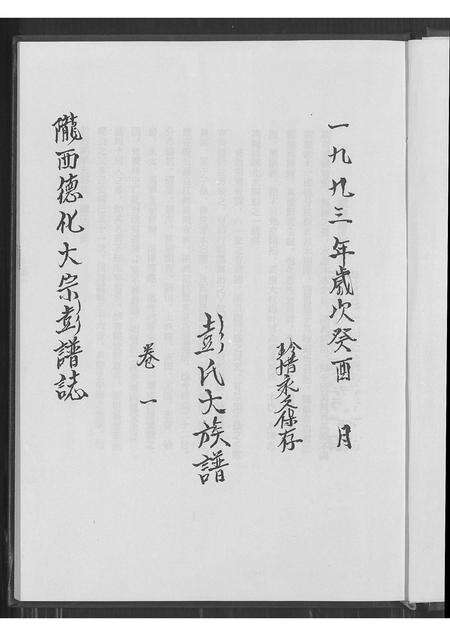 一九九三年歲次癸酉 月
珍惜永之保存
彭氏大族譜
卷一
隴西德化大宗彭譜誌